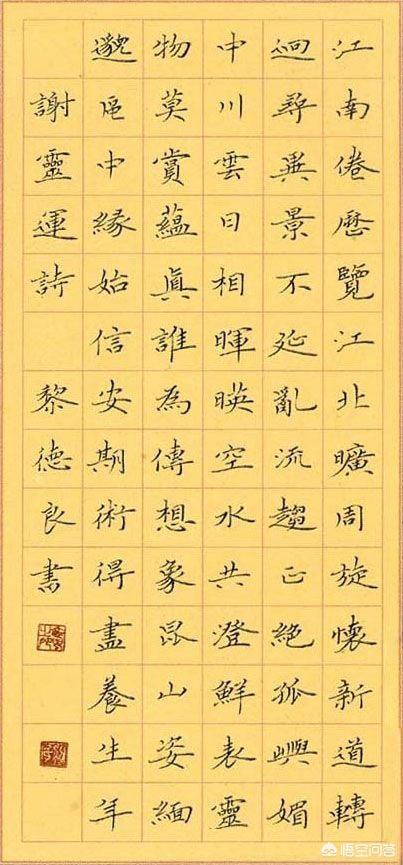 江南倦歷覽江北曠周旋懷新道轉
迴尋異景不延亂流趨正絕孤嶼媚
中川雲日相暉暎空水共澄鮮表靈
物莫賞蘊眞誰為傳想象昆山姿緬
邈區中緣始信安期術得盡養生年
謝靈運詩 黎德良書
悟空问答